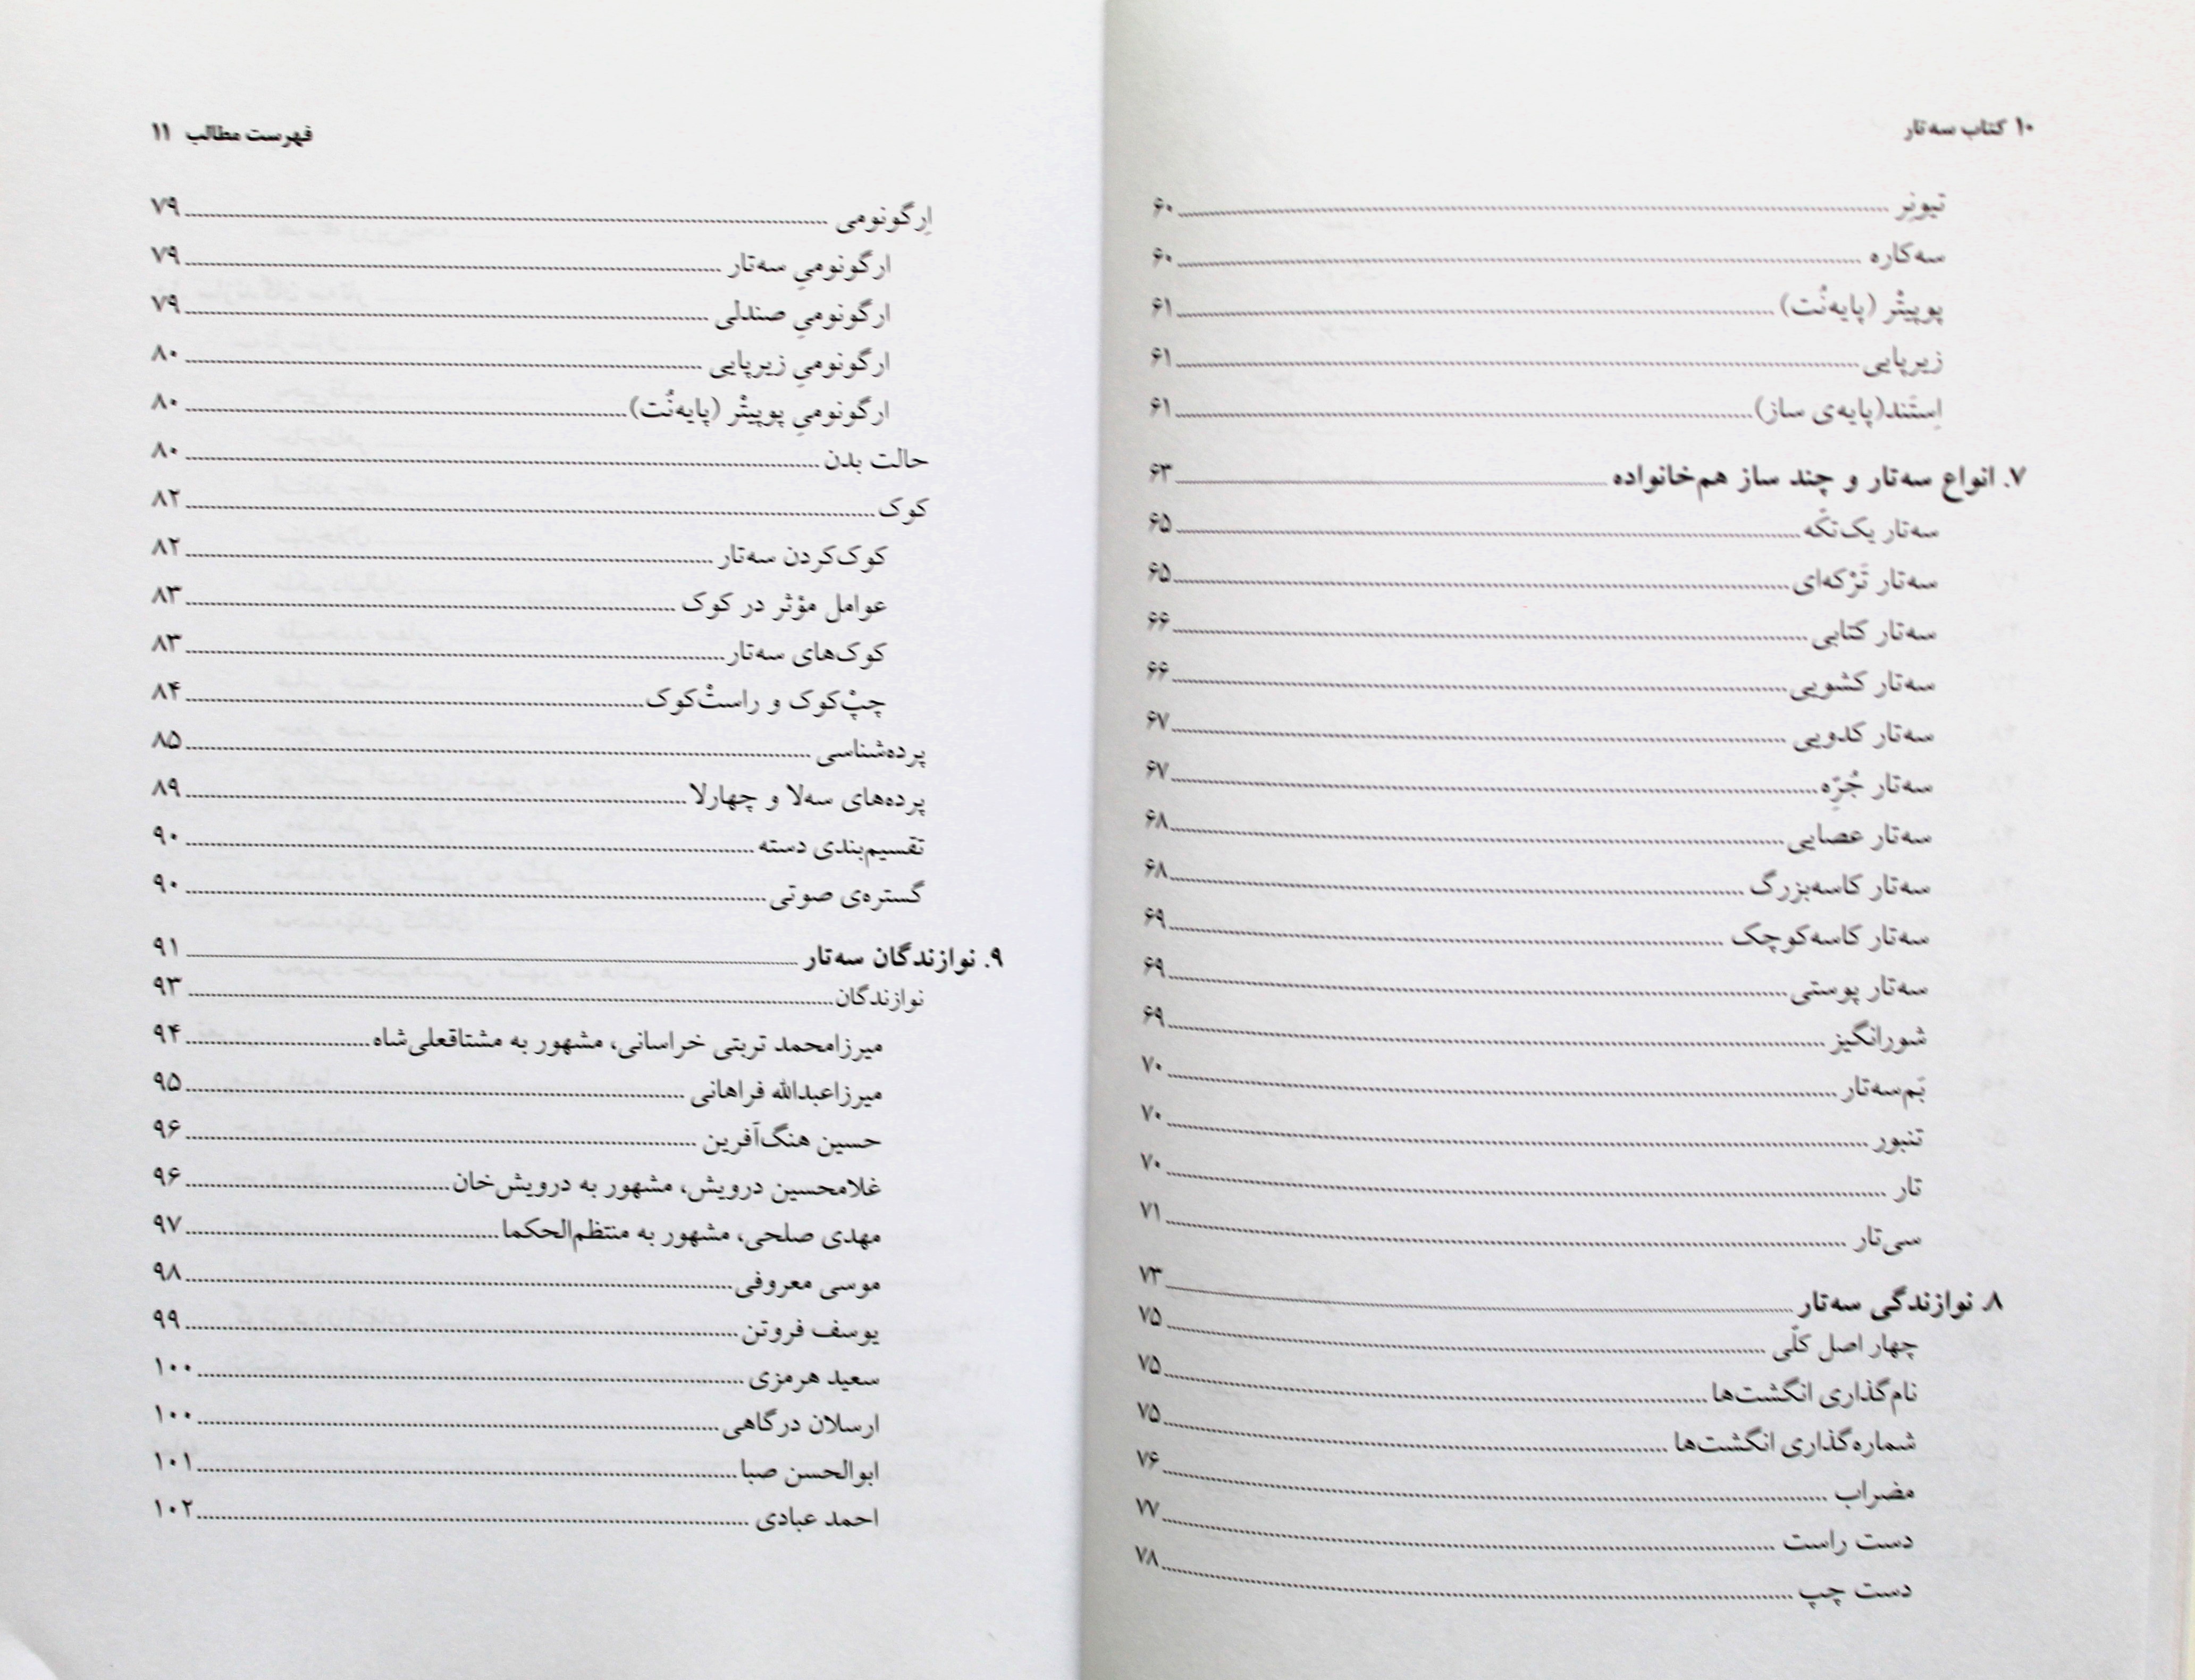 ۱۰ کتاب سه‌تار
تیونِر ۶۰
سه‌کاره ۶۰
پوپیتْر (پایه‌نُت) ۶۱
زیرپایی ۶۱
اِستَند(پایه‌ی ساز) ۶۱
۷. انواع سه‌تار و چند ساز هم‌خانواده ۶۳
سه‌تار یک‌تکّه ۶۵
سه‌تار تَرْکه‌ای ۶۵
سه‌تار کتابی ۶۶
سه‌تار کشویی ۶۶
سه‌تار کدویی ۶۷
سه‌تار جُرّه ۶۷
سه‌تار عصایی ۶۸
سه‌تار کاسه‌بزرگ ۶۸
سه‌تار کاسه‌کوچک ۶۹
سه‌تار پوستی ۶۹
شورانگیز ۶۹
بَم‌سه‌تار ۷۰
تنبور ۷۰
تار ۷۰
سی‌تار ۷۱
۸. نوازندگی سه‌تار ۷۳
چهار اصل کلّی ۷۵
نام‌گذاری انگشت‌ها ۷۵
شماره‌گذاری انگشت‌ها ۷۵
مضراب ۷۶
دست راست ۷۷
دست چپ ۷۸
فهرست مطالب ۱۱
اِرگونومی ۷۹
ارگونومیِ سه‌تار ۷۹
ارگونومیِ صندلی ۷۹
ارگونومیِ زیرپایی ۸۰
ارگونومیِ پوپیتْر (پایه‌نُت) ۸۰
حالت بدن ۸۰
کوک ۸۲
کوک‌کردن سه‌تار ۸۲
عوامل مؤثر در کوک ۸۳
کوک‌های سه‌تار ۸۳
چپْ‌کوک و راستْ‌کوک ۸۴
پرده‌شناسی ۸۵
پرده‌های سه‌لا و چهارلا ۸۹
تقسیم‌بندی دسته ۹۰
گستره‌ی صوتی ۹۰
۹. نوازندگان سه‌تار ۹۱
نوازندگان ۹۳
میرزامحمد تربتی خراسانی، مشهور به مشتاقعلی‌شاه ۹۴
میرزاعبدالله فراهانی ۹۵
حسین هنگ‌آفرین ۹۶
غلامحسین درویش، مشهور به درویش‌خان ۹۶
مهدی صلحی، مشهور به منتظم‌الحکما ۹۷
موسی معروفی ۹۸
یوسف فروتن ۹۹
سعید هرمزی ۱۰۰
ارسلان درگاهی ۱۰۰
ابوالحسن صبا ۱۰۱
احمد عبادی ۱۰۲